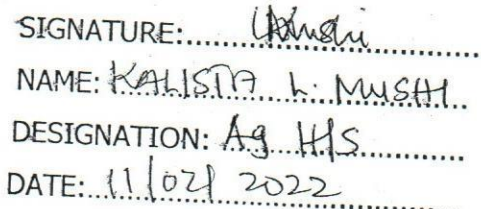 SIGNATURE: LMushi
NAME: KALISTA L. MUSHI
DESIGNATION: Ag H/S
DATE: 11/02/2022